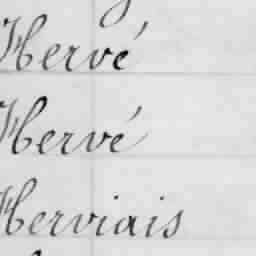 Hervé
Hervé
Herviais